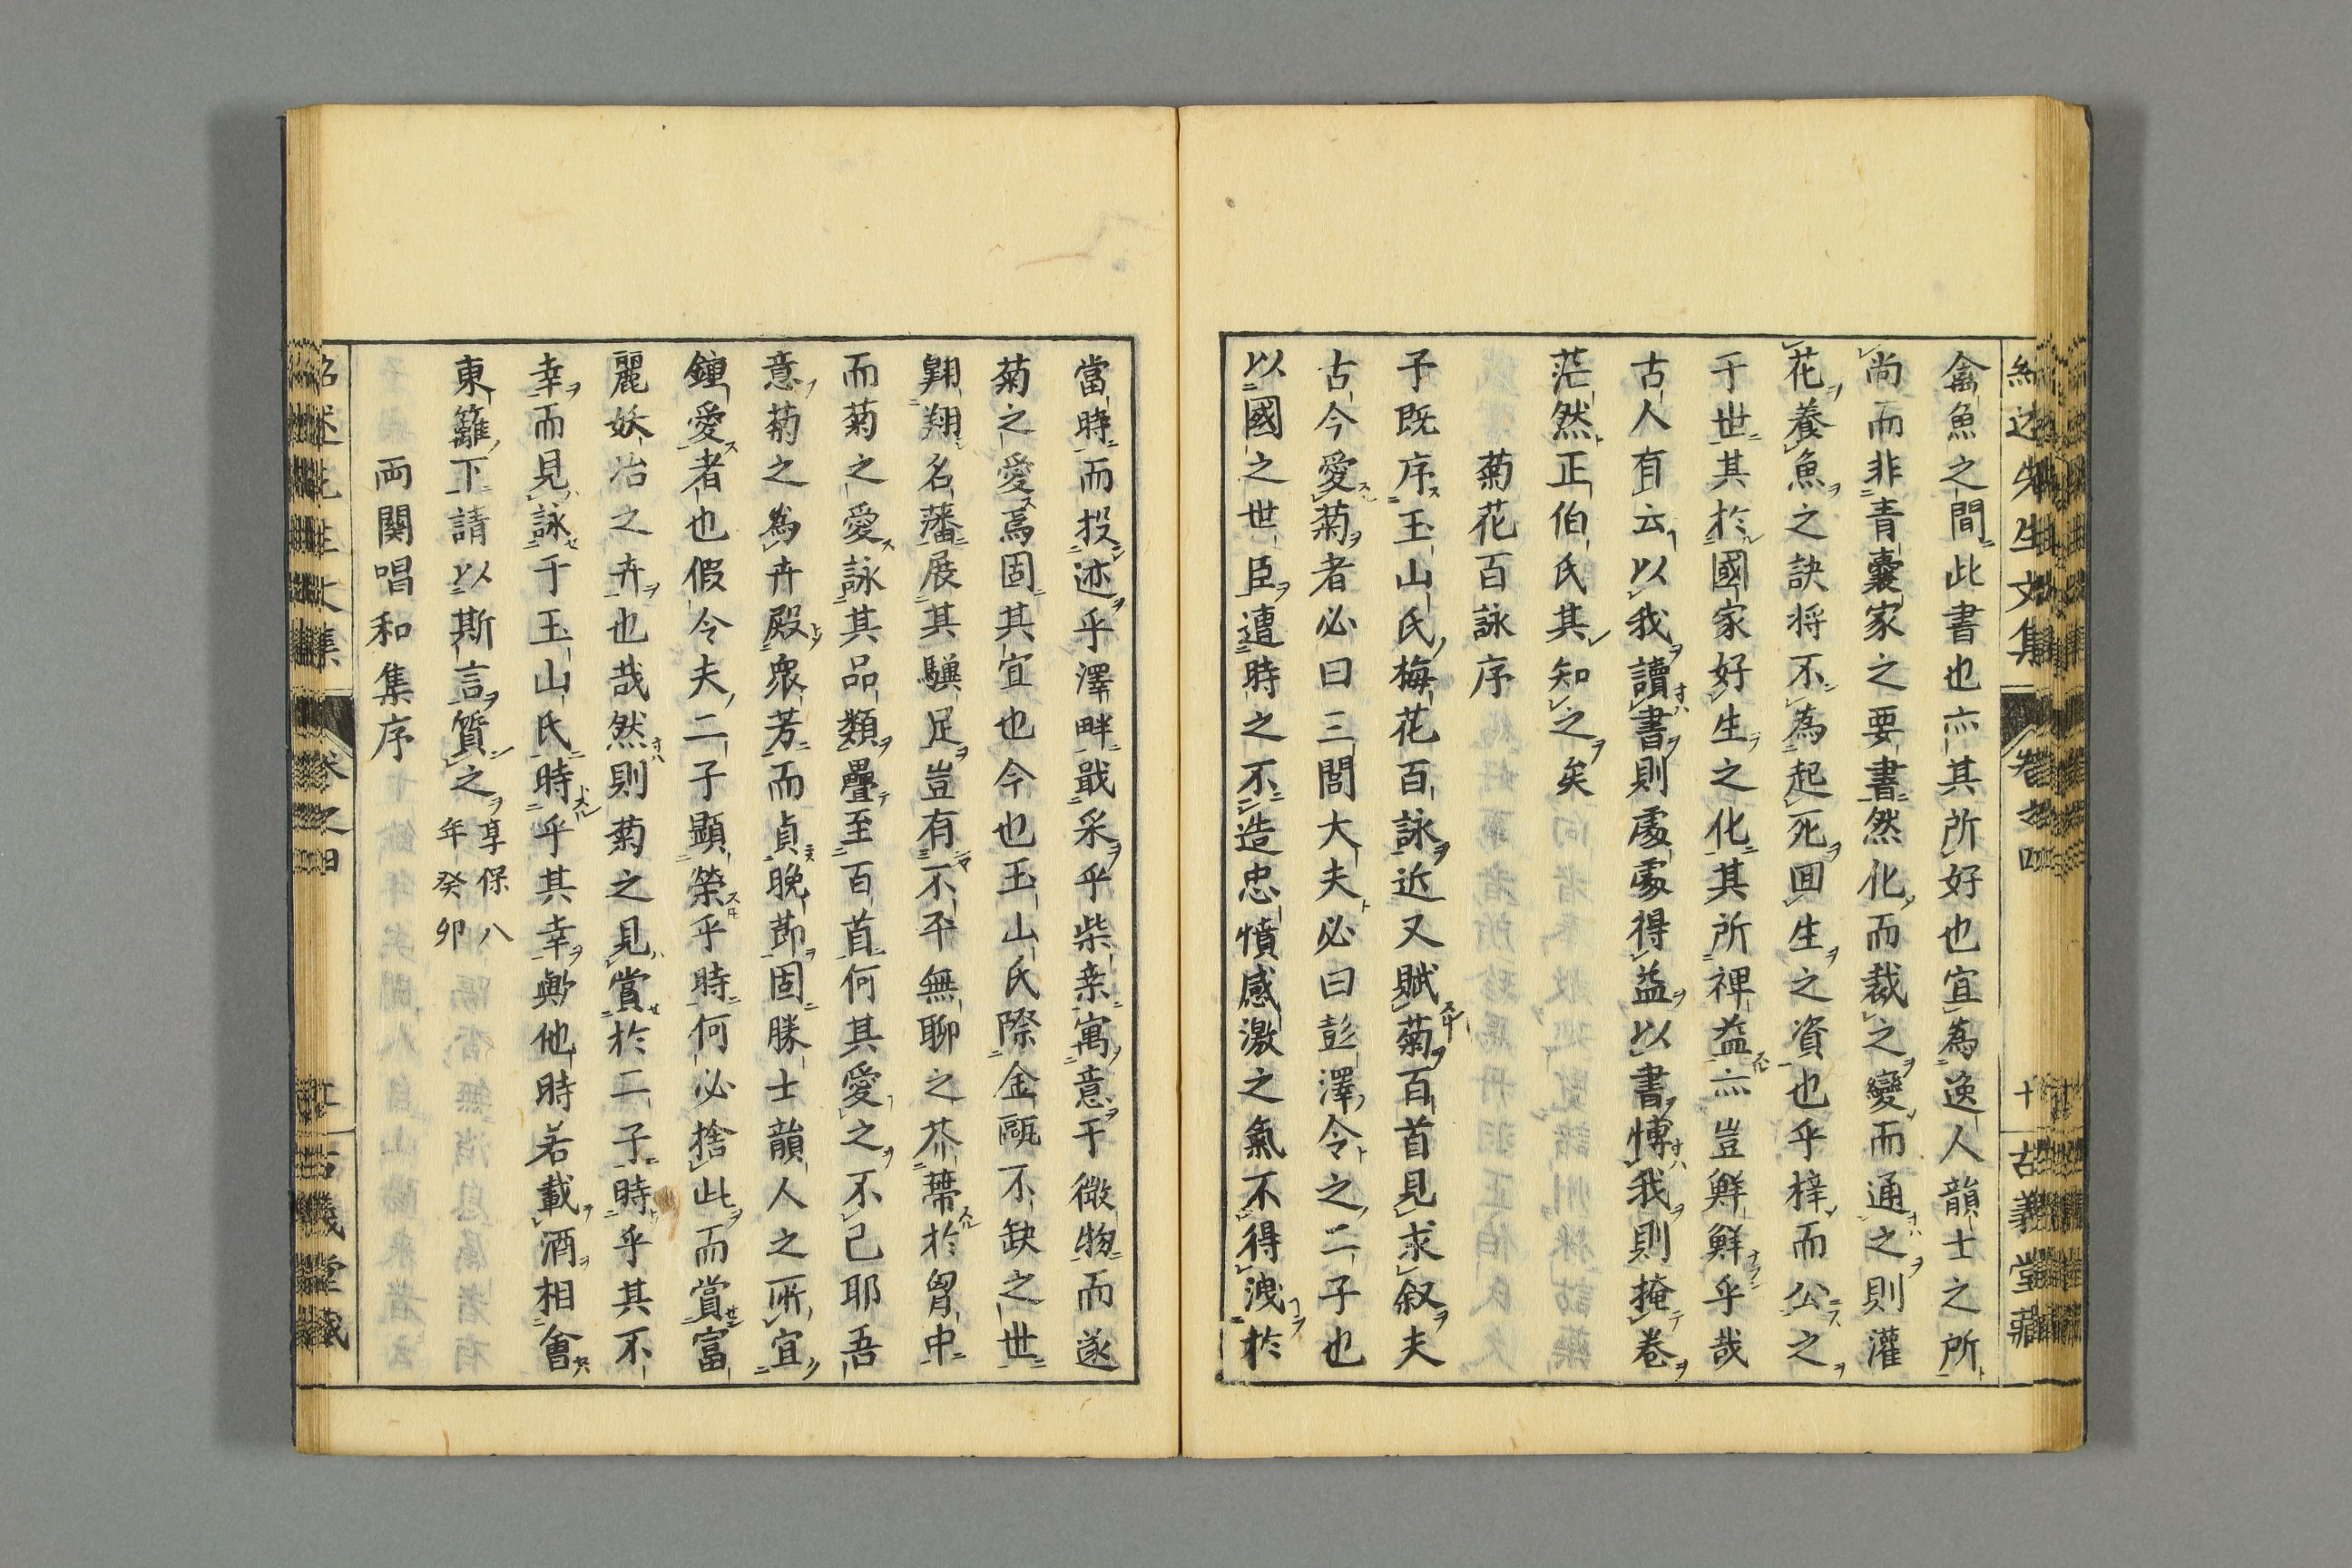 紹述先生文集 卷之四 十 古義堂藏
禽魚之間此書也亦其所好也宜為逸人韻士之所
尚而非青囊家之要書然化而裁之變而通之則灌
花養魚之訣将不為起死囬生之資也乎梓而公之
于世其於國家好生之化其所裨益亦豈鮮鮮乎哉
古人有云以我讀書則處處得益以書博我則掩卷
茫然正伯氏其知之矣
菊花百詠序
予既序玉山氏梅花百詠近又賦菊百首見求叙夫
古今愛菊者必曰三閭大夫必曰彭澤令之二子也
以國之世臣遭時之不造忠憤感激之氣不得洩於
當時而投迹乎澤畔戢采乎柴桒寓意于微物而遂
菊之愛焉固其宜也今也玉山氏際金甌不缺之世
翺翔名藩展其驥足豈有不平無聊之芥蔕於胷中
而菊之愛詠其品類疊至百首何其愛之不已耶吾
意菊之為卉殿衆芳而貞晩莭固勝士韻人之所宜
鍾愛者也假令夫二子顯榮乎時何必捨此而賞富
麗妖冶之卉也哉然則菊之見賞於二子時乎其不
幸而見詠于玉山氏時乎其幸歟他時若載酒相會
東籬下請以斯言質之 享保八
年癸卯
両関唱和集序
紹述先生文集 卷之四 古義堂藏